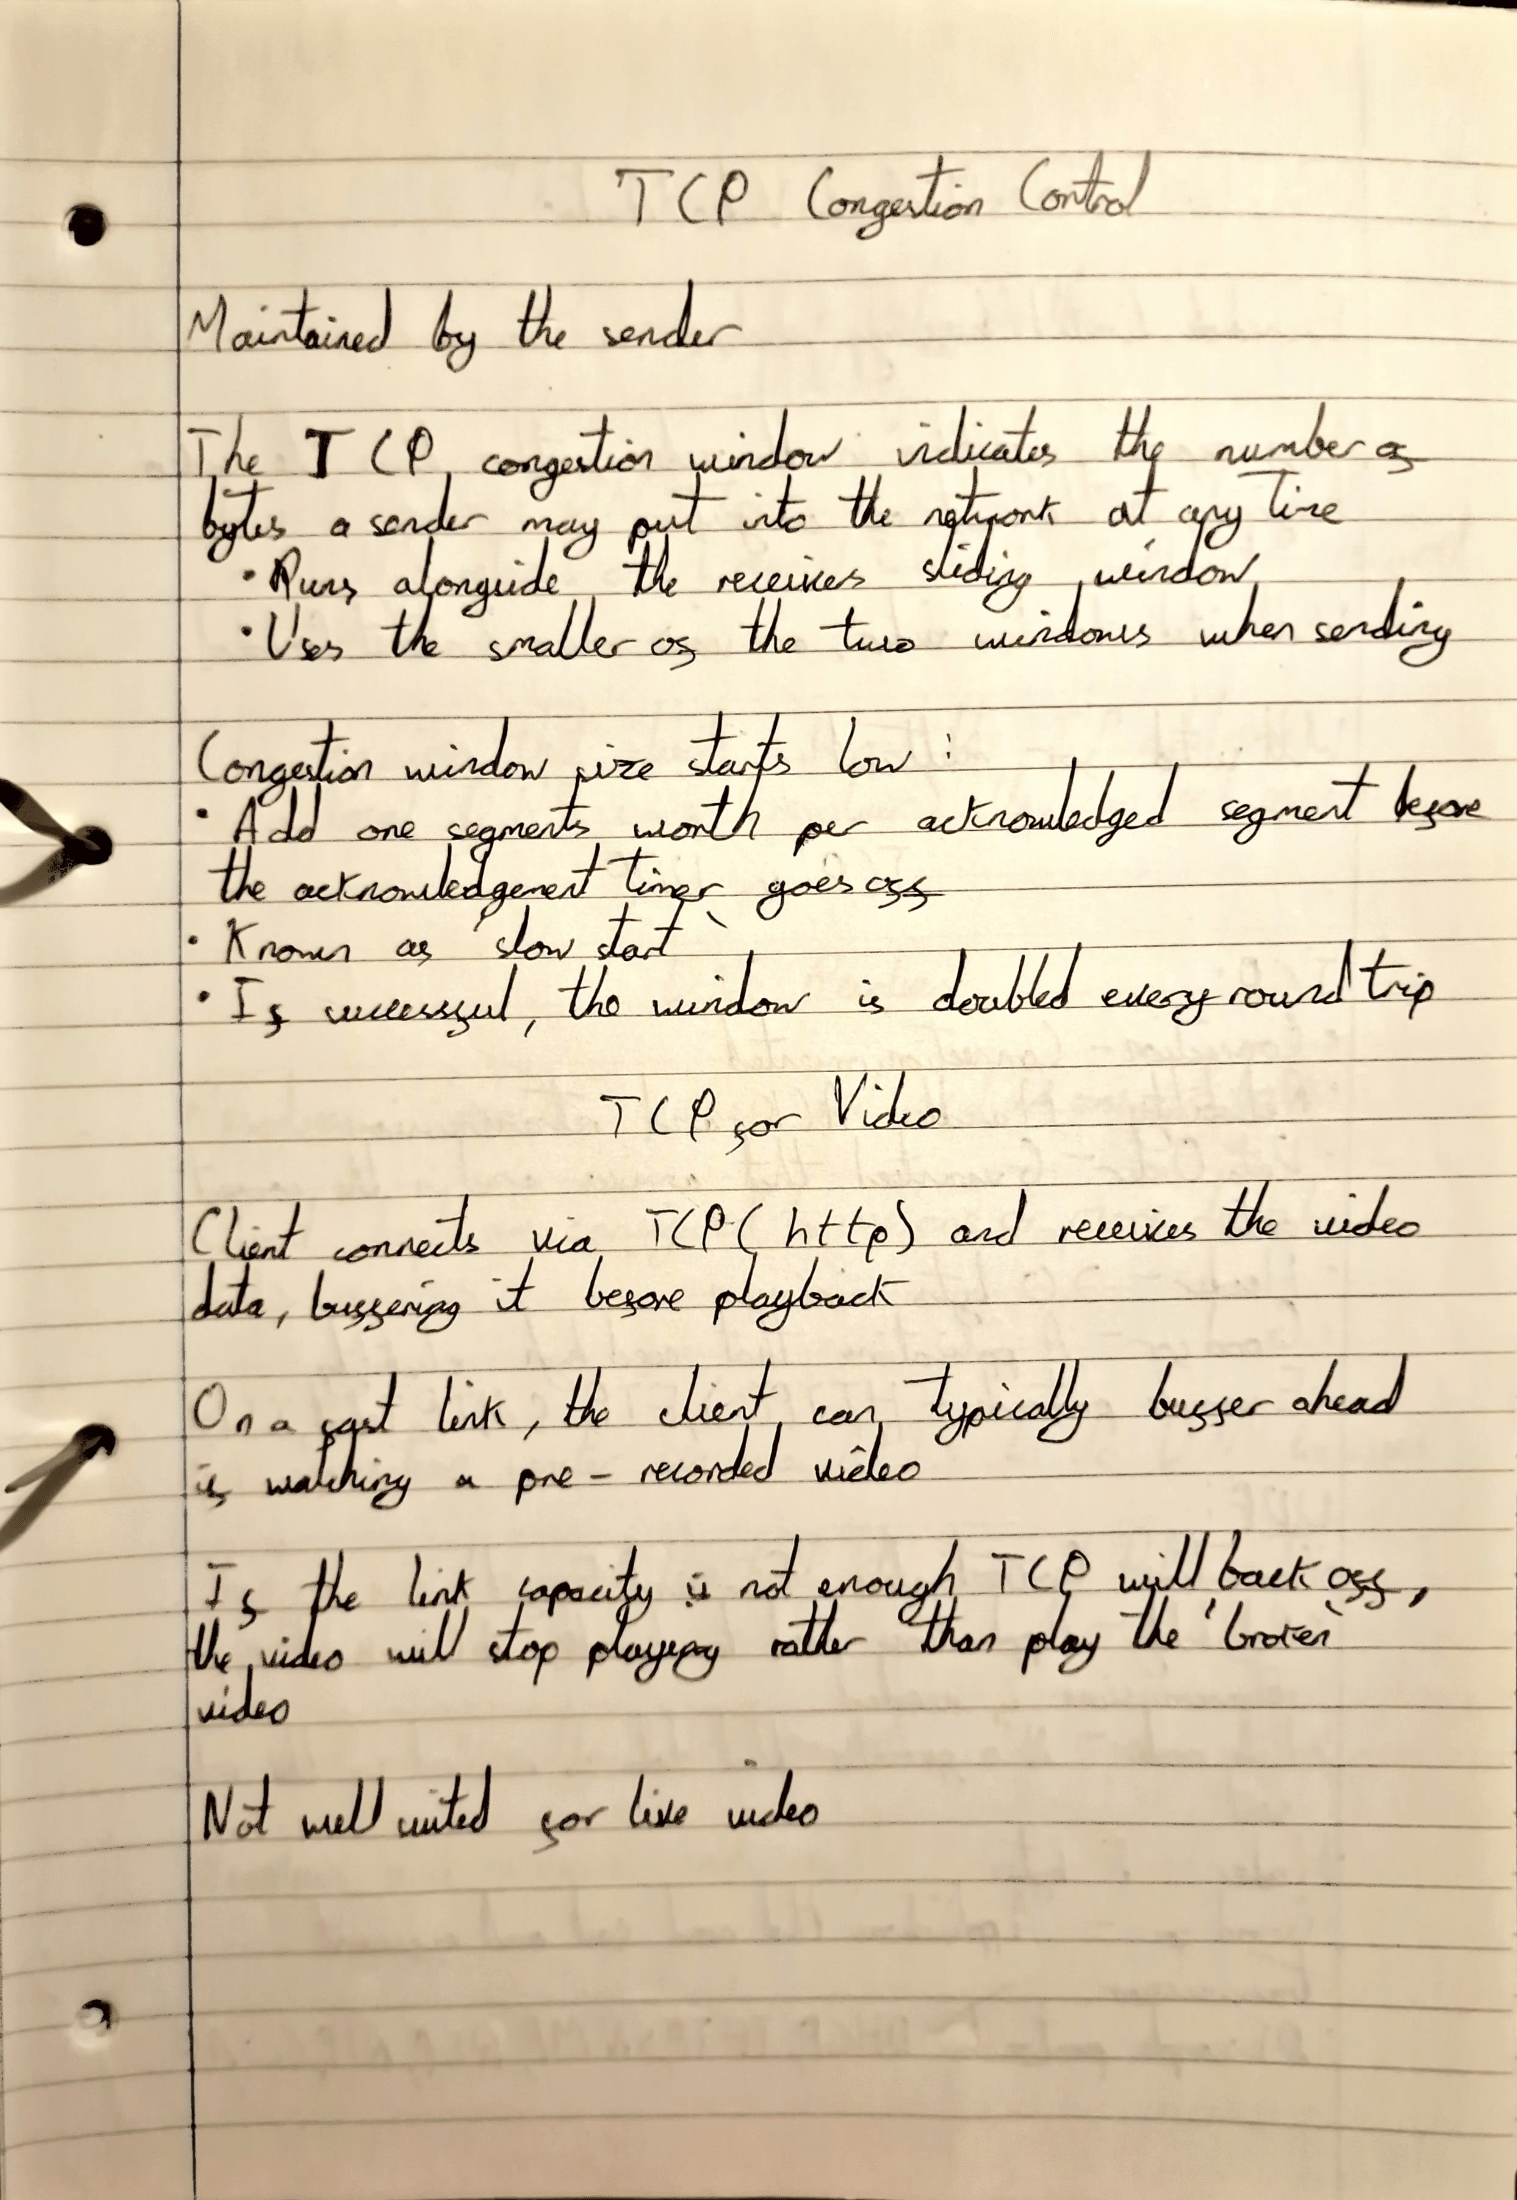 TCP Congestion Control
Maintained by the sender
The TCP congestion window indicates the number of
bytes a sender may put into the network at any time
• Runs alongside the receives sliding window
• Uses the smaller of the two windows when sending
Congestion window size starts low :
• Add one segments worth per acknowledged segment before
the acknowledgement timer goes off
• Known as 'slow start'
• If successful, the window is doubled every round trip
TCP for Video
Client connects via TCP (http) and receives the video
data, buffering it before playback
On a fast link, the client can typically buffer ahead
if watching a pre-recorded video
If the link capacity is not enough TCP will back off,
the video will stop playing rather than play the 'broken'
video
Not well suited for live video